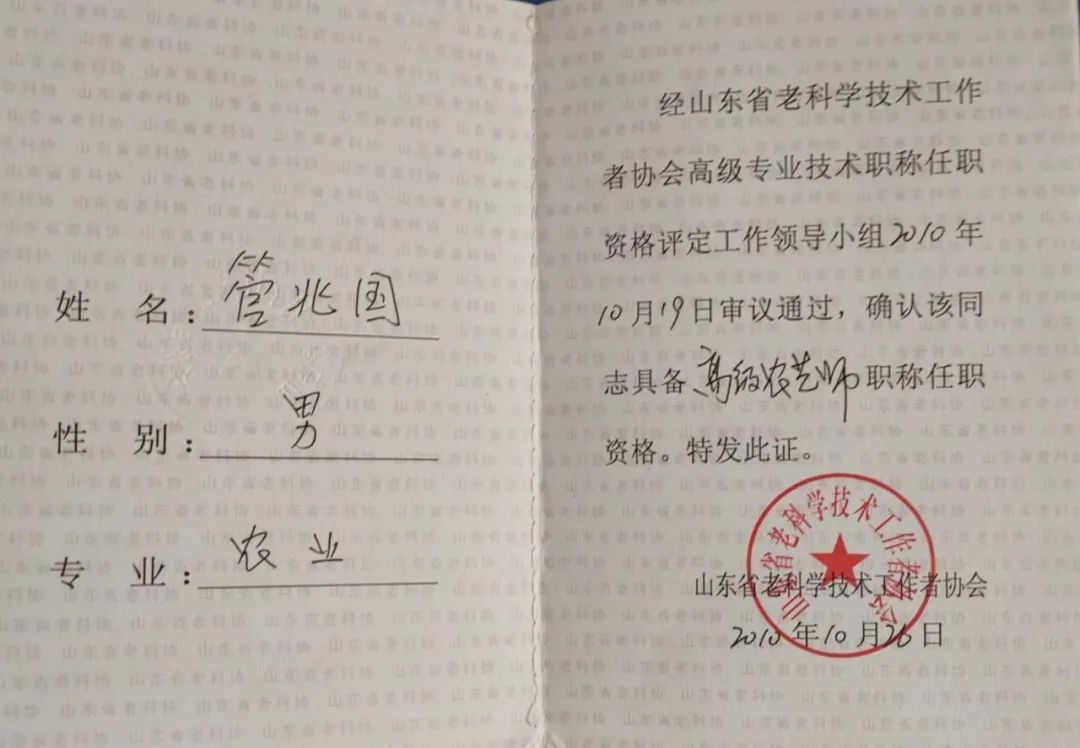 姓 名：管兆国
性 别：男
专 业：农业
经山东省老科学技术工作
者协会高级专业技术职称任职
资格评定工作领导小组2010年
10月19日审议通过，确认该同
志具备高级农艺师职称任职
资格。特发此证。
山东省老科学技术工作者协会
山东省老科学技术工作者协会
2010年10月26日